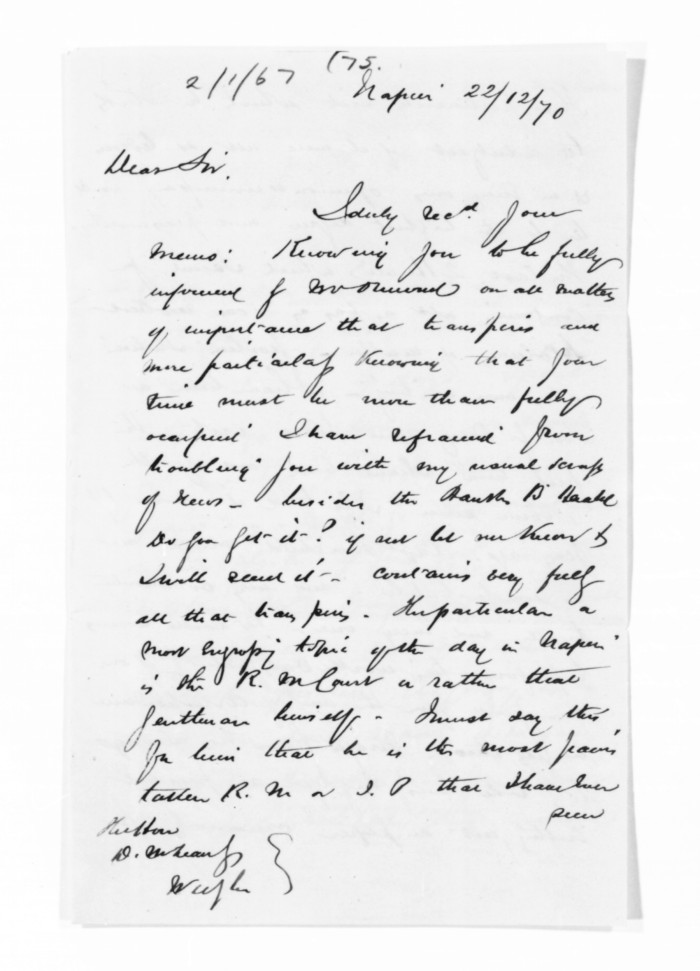 2/1/67 175.
Napier 22/12/70
Dear Sir.
I duly recd your
memo: Knowing you to be fully
informed by Mr Ormond on all matters
of importance that transpires and
more particularly knowing that your
time must be more than fully
occupied I have refrained from
troubling you with my usual scraps
of news - besides the Hawkes B Herald
Do you get it? if not let me know &
I will send it - contains very fully
all that transpires. The particular &
most engrossing topic of the day in Napier
is the R. M Court or rather that
gentleman himself. I must say this
for him that he is the most pains
taken R. M or J. P that I have ever
seen
The Hon
D. McLean